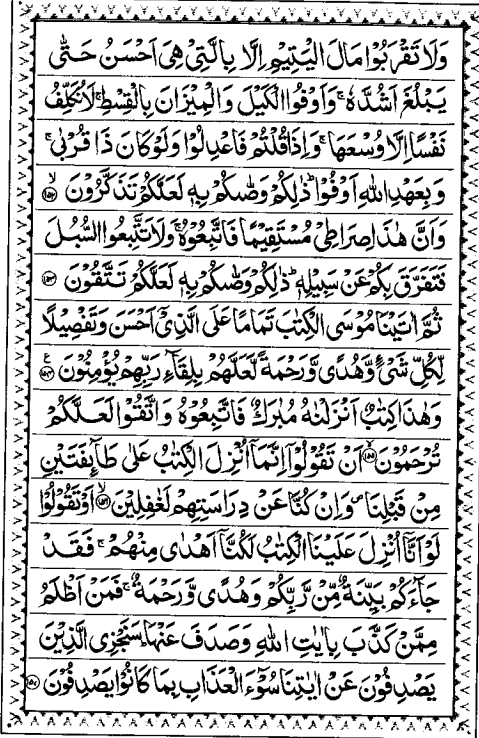 وَلَا تَقْرَبُوْا مَالَ الْيَتِيْمِ اِلَّا بِالَّتِيْ هِيَ اَحْسَنُ حَتّٰى
يَبْلُغَ اَشُدَّهٗ ۚ وَاَوْفُوا الْكَيْلَ وَالْمِيْزَانَ بِالْقِسْطِ ۚ لَا نُكَلِّفُ
نَفْسًا اِلَّا وُسْعَهَا ۚ وَاِذَا قُلْتُمْ فَاعْدِلُوْا وَلَوْ كَانَ ذَا قُرْبٰى ۚ
وَبِعَهْدِ اللّٰهِ اَوْفُوْا ؕ ذٰلِكُمْ وَصّٰىكُمْ بِهٖ لَعَلَّكُمْ تَذَكَّرُوْنَ ۙ﴿۱۵۲﴾
وَاَنَّ هٰذَا صِرَاطِيْ مُسْتَقِيْمًا فَاتَّبِعُوْهُ ۚ وَلَا تَتَّبِعُوا السُّبُلَ
فَتَفَرَّقَ بِكُمْ عَنْ سَبِيْلِهٖ ؕ ذٰلِكُمْ وَصّٰىكُمْ بِهٖ لَعَلَّكُمْ تَتَّقُوْنَ ﴿۱۵۳﴾
ثُمَّ اٰتَيْنَا مُوْسَى الْكِتٰبَ تَمَامًا عَلَى الَّذِيْۤ اَحْسَنَ وَتَفْصِيْلًا
لِّكُلِّ شَيْءٍ وَّهُدًى وَّرَحْمَةً لَّعَلَّهُمْ بِلِقَآءِ رَبِّهِمْ يُؤْمِنُوْنَ ﴿۱۵۴﴾ ع
وَهٰذَا كِتٰبٌ اَنْزَلْنٰهُ مُبٰرَكٌ فَاتَّبِعُوْهُ وَاتَّقُوْا لَعَلَّكُمْ
تُرْحَمُوْنَ ۙ﴿۱۵۵﴾ اَنْ تَقُوْلُوْۤا اِنَّمَاۤ اُنْزِلَ الْكِتٰبُ عَلٰى طَآئِفَتَيْنِ
مِنْ قَبْلِنَا ۪ وَاِنْ كُنَّا عَنْ دِرَاسَتِهِمْ لَغٰفِلِيْنَ ۙ﴿۱۵۶﴾ اَوْ تَقُوْلُوْا
لَوْ اَنَّاۤ اُنْزِلَ عَلَيْنَا الْكِتٰبُ لَكُنَّاۤ اَهْدٰى مِنْهُمْ ۚ فَقَدْ
جَآءَكُمْ بَيِّنَةٌ مِّنْ رَّبِّكُمْ وَهُدًى وَّرَحْمَةٌ ۚ فَمَنْ اَظْلَمُ
مِمَّنْ كَذَّبَ بِاٰيٰتِ اللّٰهِ وَصَدَفَ عَنْهَا ؕ سَنَجْزِي الَّذِيْنَ
يَصْدِفُوْنَ عَنْ اٰيٰتِنَا سُوْٓءَ الْعَذَابِ بِمَا كَانُوْا يَصْدِفُوْنَ ﴿۱۵۷﴾